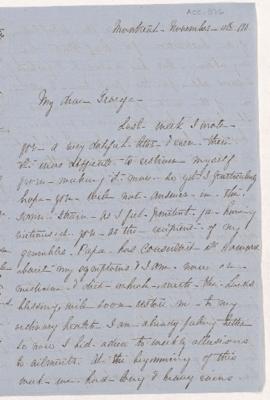 Montreal - November -
My dear George -
Last week I wrote
you a very doleful letter & even then
it was difficult to restrain myself
from making it more so yet I
hope you will not answer in the
same strain as I feel penitent for having
victimised you as the recipient of my
grumbles. Papa has consulted Dr
about my symptoms & I am now on
medicine & diet which with the Lord's
blessing will soon restore me to my
ordinary health I am already feeling better
so now I bid adieu to weekly allusions
to ailments. At the beginning of this
week we had very heavy rains